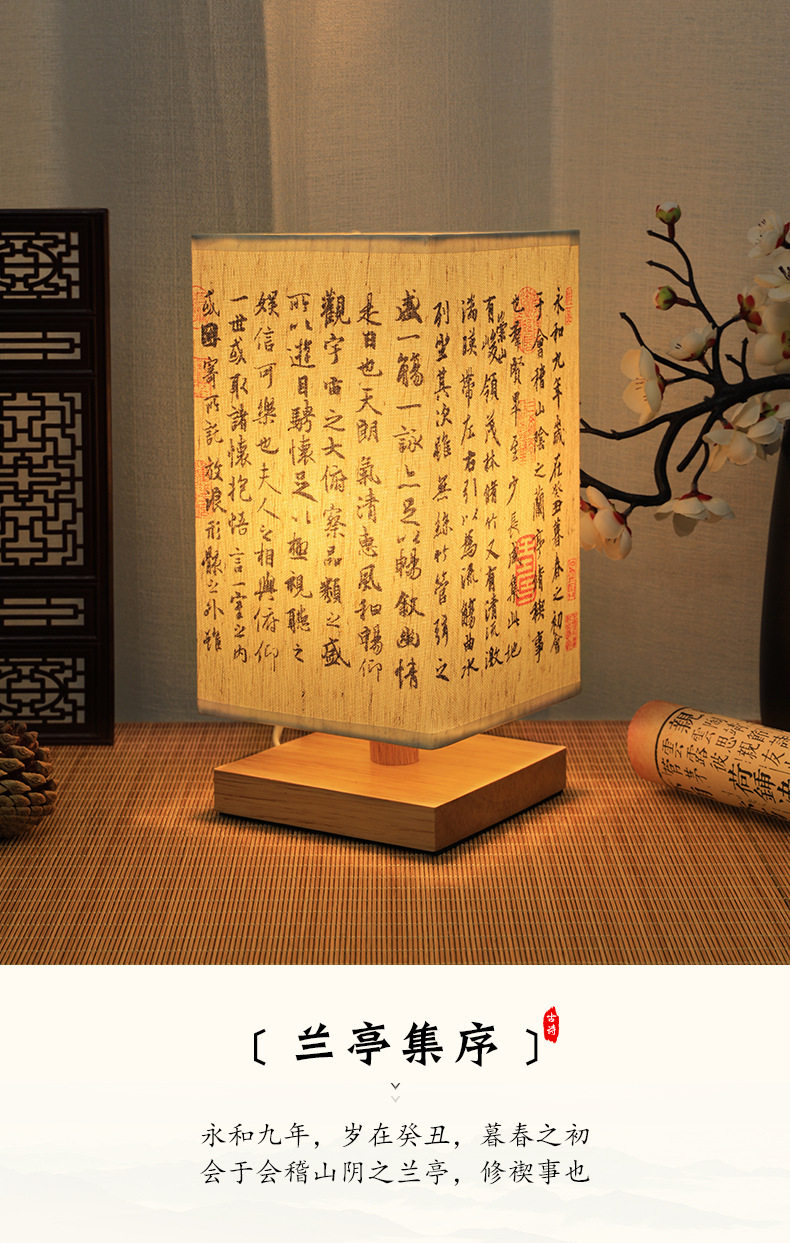 永和九年歲在癸丑暮春之初會
于會稽山陰之蘭亭脩禊事
也羣賢畢至少長咸集此地
有崇山峻領茂林脩竹又有清流激
湍暎帶左右引以為流觴曲水
列坐其次雖無絲竹管弦之
盛一觴一詠亦足以暢敘幽情
是日也天朗氣清惠風和暢仰
觀宇宙之大俯察品類之盛
所以遊目騁懷足以極視聽之
娛信可樂也夫人之相與俯仰
一世或取諸懷抱悟言一室之內
或因寄所託放浪形骸之外雖
〔兰亭集序〕
古诗
永和九年，岁在癸丑，暮春之初
会于会稽山阴之兰亭，修禊事也